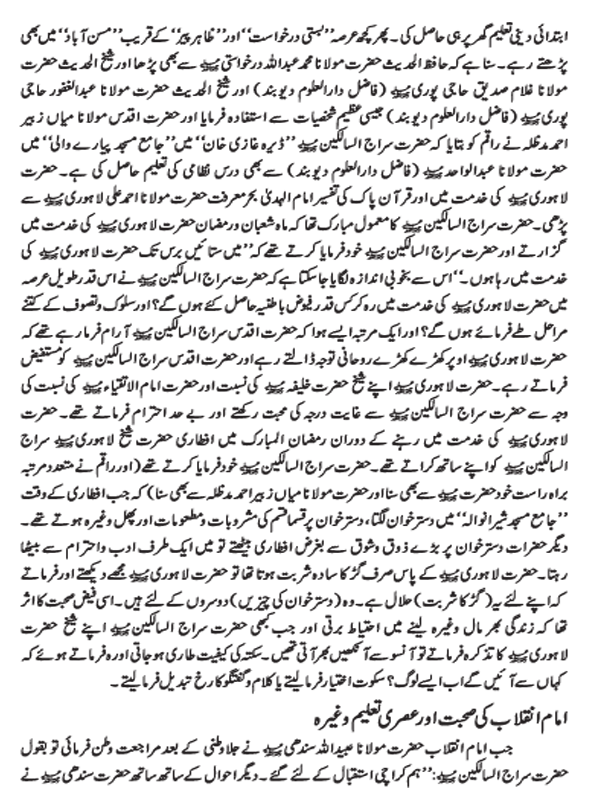 ابتدائی دینی تعلیم گھر پر ہی حاصل کی۔ پھر کچھ عرصہ ”بستی درخواست“ اور ”ظاہر پیر“ کے قریب ”حسن آباد“ میں بھی
پڑھتے رہے۔ سنا ہے کہ حافظ الحدیث حضرت مولانا محمد عبداللہ درخواستی ؒ سے بھی پڑھا اور شیخ الحدیث حضرت
مولانا غلام صدیق حاجی پوری ؒ (فاضل دارالعلوم دیوبند) اور شیخ الحدیث حضرت مولانا عبدالغفور حاجی
پوری ؒ (فاضل دارالعلوم دیوبند) جیسی عظیم شخصیات سے استفادہ فرمایا اور حضرت اقدس مولانا میاں زبیر
احمد مدظلہ نے راقم کو بتایا کہ حضرت سراج السالکین ؒ ”ڈیرہ غازی خان“ میں ”جامع مسجد پیارے والی“ میں
حضرت مولانا عبدالواحد ؒ (فاضل دارالعلوم دیوبند) سے بھی درس نظامی کی تعلیم حاصل کی ہے۔ حضرت
لاہوری ؒ کی خدمت میں اور قرآن پاک کی تفسیر امام الہدیٰ بحر معرفت حضرت مولانا احمد علی لاہوری ؒ سے
پڑھی۔ حضرت سراج السالکین ؒ کا معمول مبارک تھا کہ ماہ شعبان و رمضان حضرت لاہوری ؒ کی خدمت میں
گزارتے اور حضرت سراج السالکین ؒ خود فرمایا کرتے تھے کہ ”میں ستائیس برس تک حضرت لاہوری ؒ کی
خدمت میں رہا ہوں۔“ اس سے بخوبی اندازہ لگایا جاسکتا ہے کہ حضرت سراج السالکین ؒ نے اس قدر طویل عرصہ
میں حضرت لاہوری ؒ کی خدمت میں رہ کر کس قدر فیوض باطنیہ حاصل کئے ہوں گے؟ اور سلوک و تصوف کے کتنے
مراحل طے فرمائے ہوں گے؟ اور ایک مرتبہ ایسے ہوا کہ حضرت اقدس سراج السالکین ؒ آرام فرما رہے تھے کہ
حضرت لاہوری ؒ اوپر کھڑے کھڑے روحانی توجہ ڈالتے رہے اور حضرت اقدس سراج السالکین ؒ کو مستفیض
فرماتے رہے۔ حضرت لاہوری ؒ اپنے شیخ حضرت خلیفہ ؒ کی نسبت اور حضرت امام الاتقیاء ؒ کی نسبت کی
وجہ سے حضرت سراج السالکین ؒ سے غایت درجہ کی محبت رکھتے اور بے حد احترام فرماتے تھے۔ حضرت
لاہوری ؒ کی خدمت میں رہنے کے دوران رمضان المبارک میں افطاری حضرت شیخ لاہوری ؒ سراج
السالکین ؒ کو اپنے ساتھ کراتے تھے۔ حضرت سراج السالکین ؒ خود فرمایا کرتے تھے (اور راقم نے متعدد مرتبہ
براہ راست خود حضرت ؒ سے بھی سنا اور حضرت مولانا میاں زبیر احمد مدظلہ سے بھی سنا) کہ جب افطاری کے وقت
”جامع مسجد شیرانوالہ“ میں دسترخوان لگتا، دسترخوان پر قسما قسم کی مشروبات و مطعومات اور پھل وغیرہ ہوتے تھے۔
دیگر حضرات دسترخوان پر بڑے ذوق و شوق سے بغرض افطاری بیٹھتے تو میں ایک طرف ادب و احترام سے بیٹھا
رہتا۔ حضرت لاہوری ؒ کے پاس صرف گڑ کا سادہ شربت ہوتا تھا تو حضرت لاہوری ؒ مجھے دیکھتے اور فرماتے
کہ اپنے لئے یہ (گڑ کا شربت) حلال ہے۔ وہ (دسترخوان کی چیزیں) دوسروں کے لئے ہیں۔ اسی فیض صحبت کا اثر
تھا کہ زندگی بھر مال وغیرہ لینے میں احتیاط برتی اور جب کبھی حضرت سراج السالکین ؒ اپنے شیخ حضرت
لاہوری ؒ کا تذکرہ فرماتے تو آنسو سے آنکھیں بھر آتی تھیں۔ سکتہ کی کیفیت طاری ہوجاتی اور وہ فرماتے ہوئے کہ
کہاں سے آئیں گے اب ایسے لوگ؟ سکوت اختیار فرمالیتے یا کلام و گفتگو کا رخ تبدیل فرمالیتے۔
امام انقلاب کی صحبت اور عصری تعلیم وغیرہ
جب امام انقلاب حضرت مولانا عبیداللہ سندھی ؒ نے جلاوطنی کے بعد مراجعت وطن فرمائی تو بقول
حضرت سراج السالکین ؒ: ”ہم کراچی استقبال کے لئے گئے۔ دیگر احوال کے ساتھ ساتھ حضرت سندھی ؒ نے